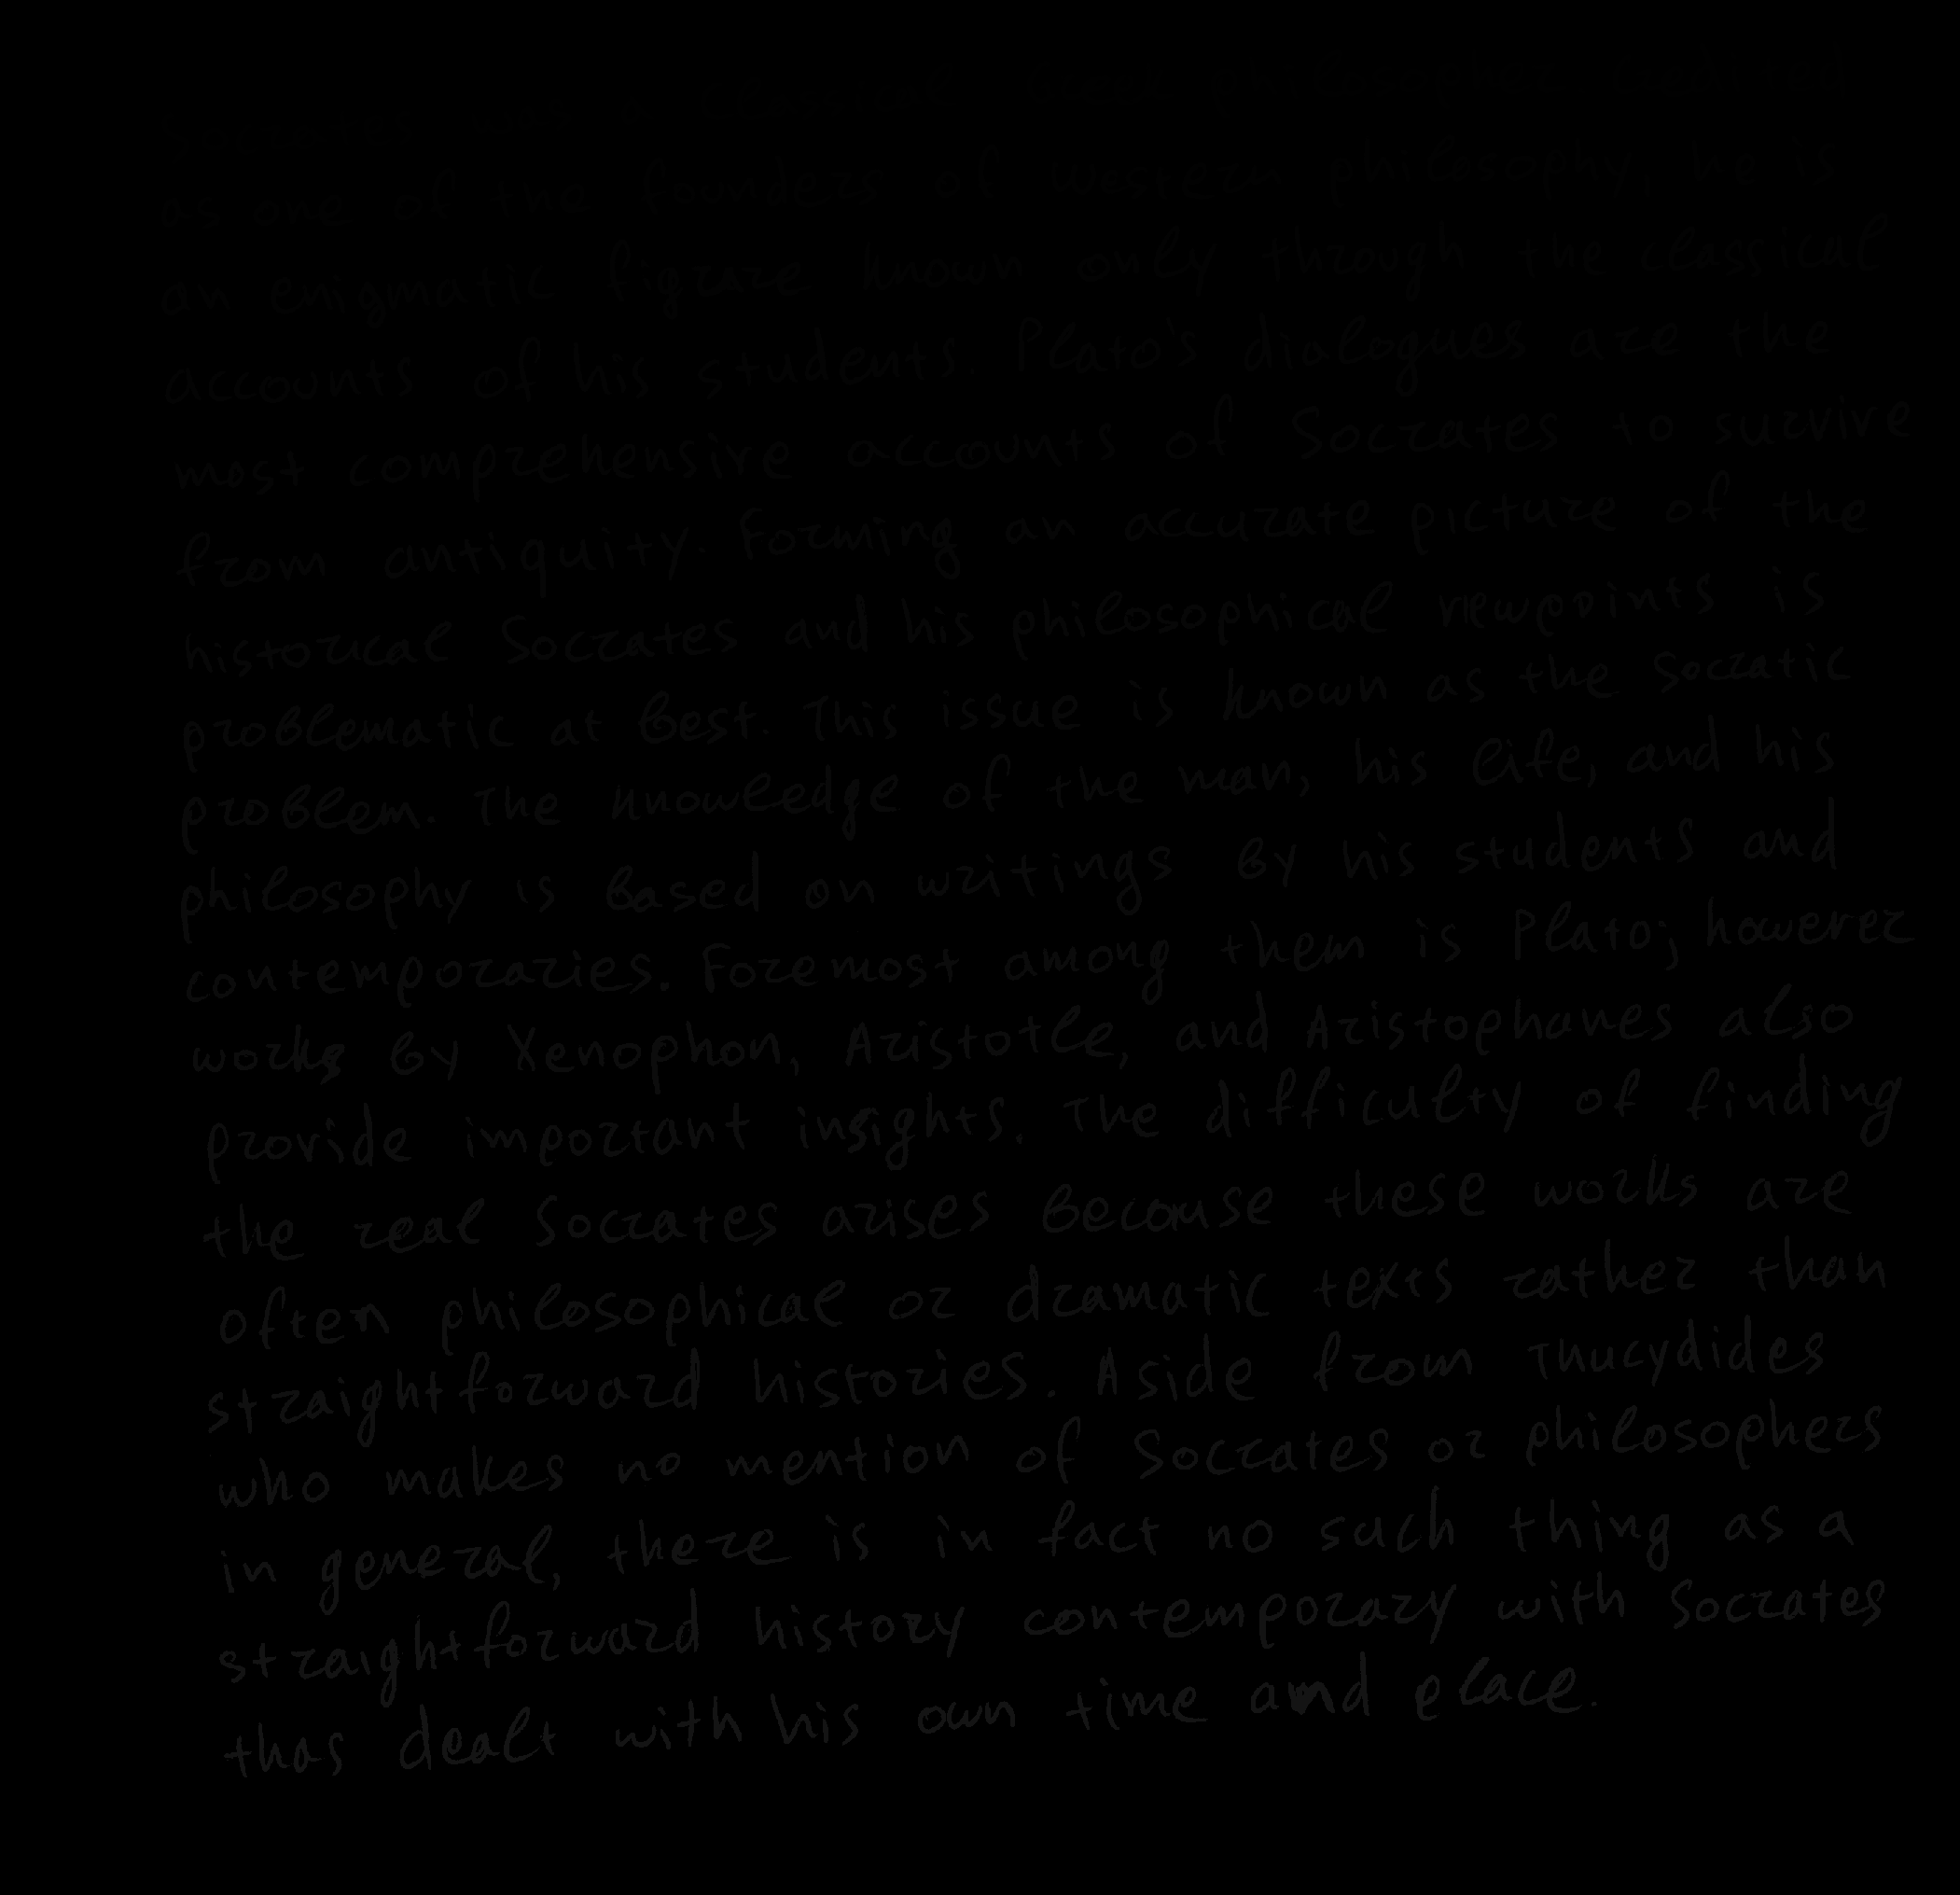 Socrates was a classical Greek philosopher credited
as one of the founders of Western philosophy, he is
an enigmatic figrare known only through the classical
accounts of his students. Plato's dialogues are the
most comprehensive accounts of Socrates to survive
from antiquity. Forming an accurate picture of the
historical Socrates and his philosophical viewpoints is
problematic at best. This issue is known as the Socratic
problem. The knowledge of the man, his life, and his
philosophy is based on writings by his students and
contemporaries. Foremost among them is Plato; however
works by Xenophon, Aristotle, and Aristophanes also
provide important insights. The difficulty of finding
the real Socrates arises because these works are
often philosophical or dramatic texts rather than
straightforward histories. Aside from Thucydides
who makes no mention of Socrates or philosophers
in general, there is in fact no such thing as a
straightforward history contemporary with Socrates
thas dealt with his own time and place.